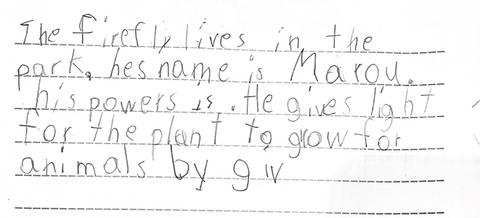 The firefly lives in the
park, hes name is Marou.
his powers is. He gives light
for the plant to grow for
animals by giv